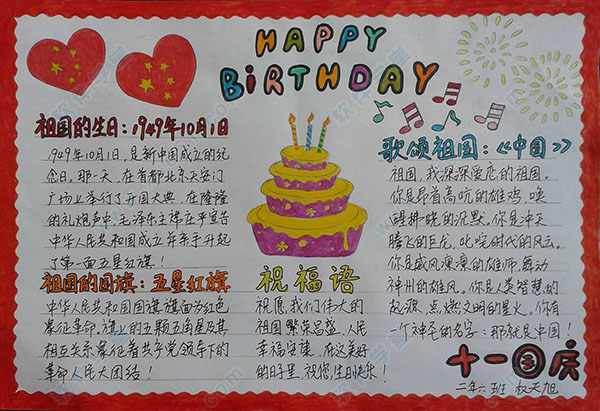 HAPPY
BIRTHDAY
祖国的生日：1949年10月1日
1949年10月1日，是新中国成立的纪
念日。那一天，在首都北京天安门
广场上举行了开国大典，在隆隆
的礼炮声中，毛泽东主席庄严宣告
中华人民共和国成立并亲手升起
了第一面五星红旗！
祖国的国旗：五星红旗
中华人民共和国国旗旗面为红色
象征革命。旗上的五颗五角星及其
相互关系象征着共产党领导下的
革命人民大团结！
祝福语
祝愿我们伟大的
祖国繁荣昌盛，人民
幸福安康，在这美好
的日子里，祝您生日快乐！
歌颂祖国：《中国》
祖国，我深深爱底的祖国。
你是昂首高吭的雄鸡，唤
醒拂晓的沉默，你是冲天
腾飞的巨龙，叱咤时代的风云。
你是威风凛凛的雄师，舞动
神州的雄风，你是人类智慧的
起源，点燃文明的星火。你有
一个神圣的名字：那就是中国！
十一国庆
二年六班 权天旭